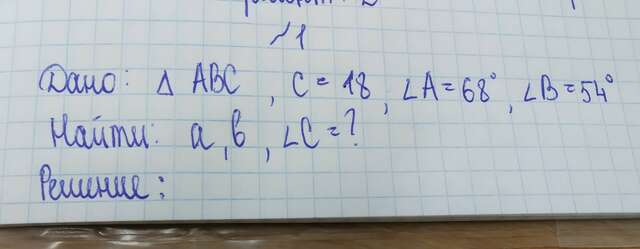 №1
Дано: Δ ABC, C = 18, ∠A = 68°, ∠B = 54°
Найти: a, b, ∠C = ?
Решение: